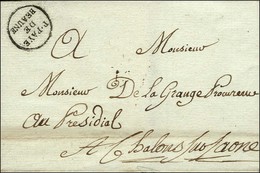 P. PAYÉ
DE
BEAUNE
A Monsieur
Monsieur De la Grange Procureur
au Presidial
A Chalons sur Saone